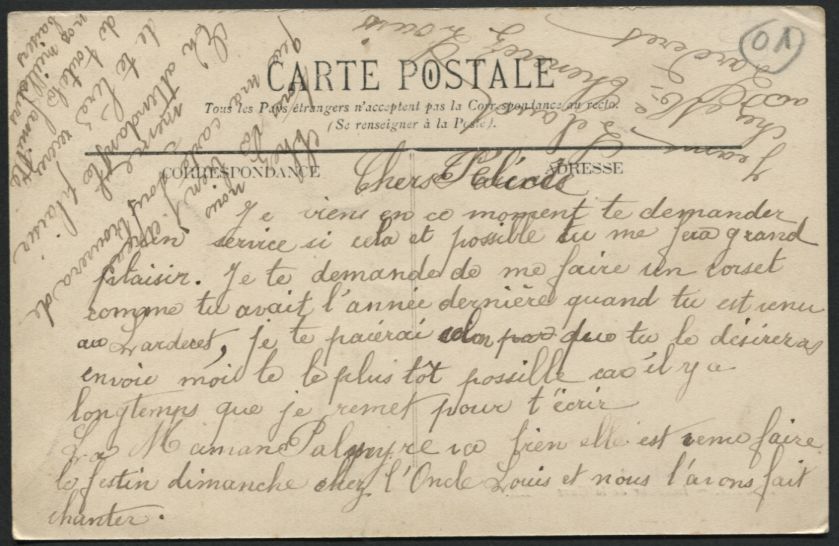 01
CARTE POSTALE
Tous les Pays étrangers n'acceptent pas la Correspondance au recto.
(Se renseigner à la Poste).
CORRESPONDANCE
ADRESSE
Chers
Je viens en ce moment te demander
un service si cela et possible tu me fera grand
plaisir. Je te demande de me faire un corset
comme tu avait l'année dernière quand tu est venu
au Larderet, je te paierai que tu le désireras
envoie moi te le plus tôt possible car il y a
longtemps que je remet pour t'écrir
La Maman Palmyre va bien elle est venu faire
le festin dimanche chez l'Oncle Louis et nous l'avons fait
chanter.
que ma carte vous trouvera de
même
En attendant le plaisir
de te lire, recois
de toute la famille
nos meilleurs
baisers
Jeanne
chez Mr
au Larderet